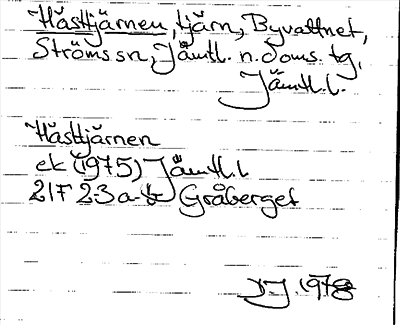 Hästtjärnen, tjärn, Byvattnet,
Ströms sn, Jämtl. n. doms. tg,
Jämtl. l.
Hästtjärnen
ek (1975) Jämtl. l
21F 23 a-b Gråberget
J. 1978